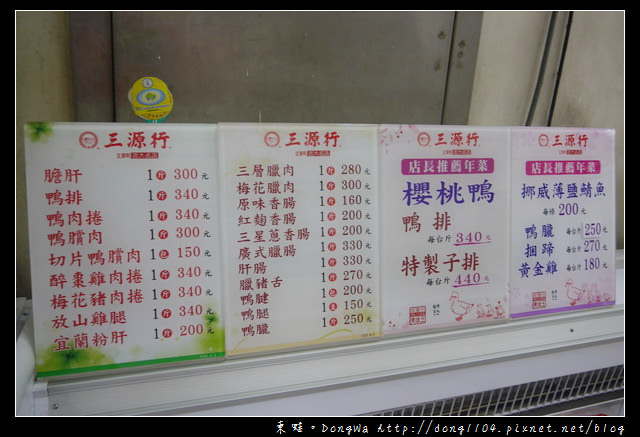 三源行
膽肝 1斤 300元
鴨排 1斤 340元
鴨肉捲 1斤 340元
鴨臏肉 1斤 300元
切片鴨臏肉 1包 150元
醉棗雞肉捲 1斤 340元
梅花豬肉捲 1斤 340元
放山雞腿 1斤 340元
宜蘭粉肝 1斤 200元
三源行
三層臘肉 1斤 280元
梅花臘肉 1斤 300元
原味香腸 1斤 160元
紅麴香腸 1斤 200元
三星蔥香腸 1斤 200元
廣式臘腸 1斤 330元
肝腸 1斤 330元
臘豬舌 1斤 270元
鴨腱 1包 200元
鴨腿 1支 150元
鴨臘 1斤 250元
三源行
店長推薦年菜
櫻桃鴨
鴨排
每台斤 340元
特製子排
每台斤 440元
三源行
店長推薦年菜
挪威薄鹽鯖魚
每條 200元
鴨臘 每台斤 250元
捆蹄 每台斤 270元
黃金雞 每台斤 180元
東蛙。Dongwa http://dong1104.pixnet.net/blog